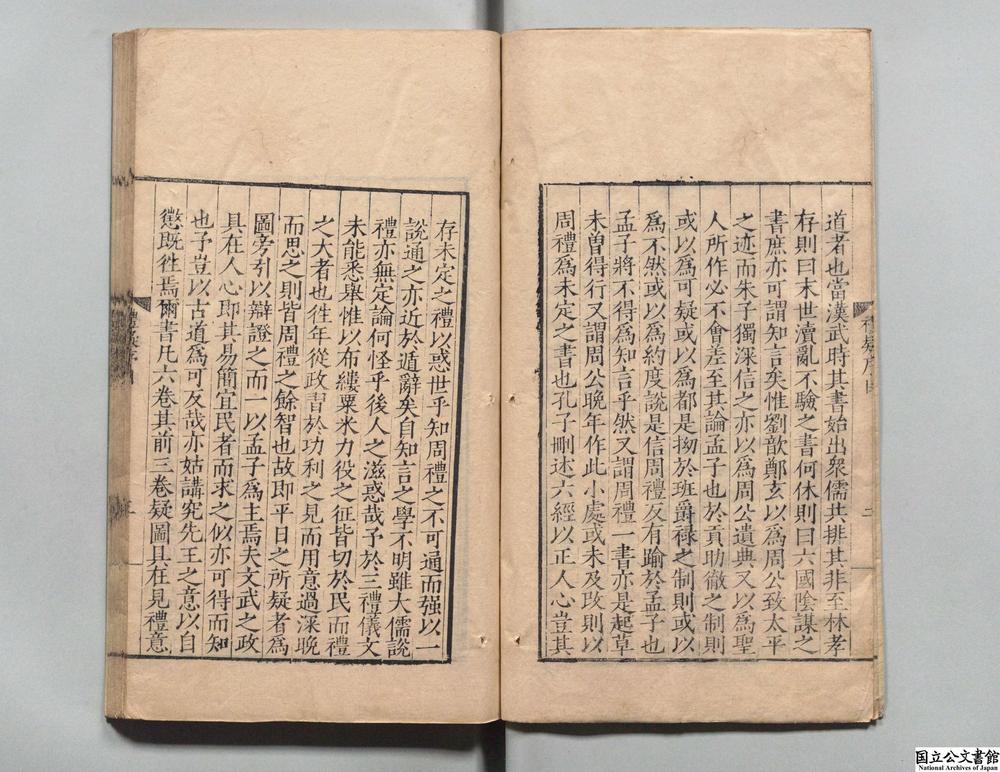 道者也當漢武時其書始出衆儒共排其非至林孝
存則曰末世瀆亂不驗之書何休則曰六國陰謀之
書庶亦可謂知言矣惟劉歆鄭玄以爲周公致太平
之迹而朱子獨深信之亦以爲周公遺典又以爲聖
人所作必不會差至其論孟子也於貢助徹之制則
或以爲可疑或以爲都是拗於班爵祿之制則或以
爲不然或以爲約度說是信周禮反有踰於孟子也
孟子將不得爲知言乎然又謂周禮一書亦是起草
未曾得行又謂周公晚年作此小處或未及改則以
周禮爲未定之書也孔子刪述六經以正人心豈其
存未定之禮以惑世乎知周禮之不可通而强以一
說通之亦近於遁辭矣自知言之學不明雖大儒說
禮亦無定論何怪乎後人之滋惑哉予於三禮儀文
未能悉舉惟以布縷粟米力役之征皆切於民而禮
之大者也徃年從政習於功利之見而用意過深晚
而思之則皆周禮之餘智也故即平日之所疑者爲
圖旁引以辯證之而一以孟子爲主焉夫文武之政
具在人心即其易簡宜民者而求之似亦可得而知
也予豈以古道爲可反哉亦姑講究先王之意以自
懲既徃焉爾書凡六卷其前三卷疑圖具在見禮意
国立公文書館
National Archives of Japan